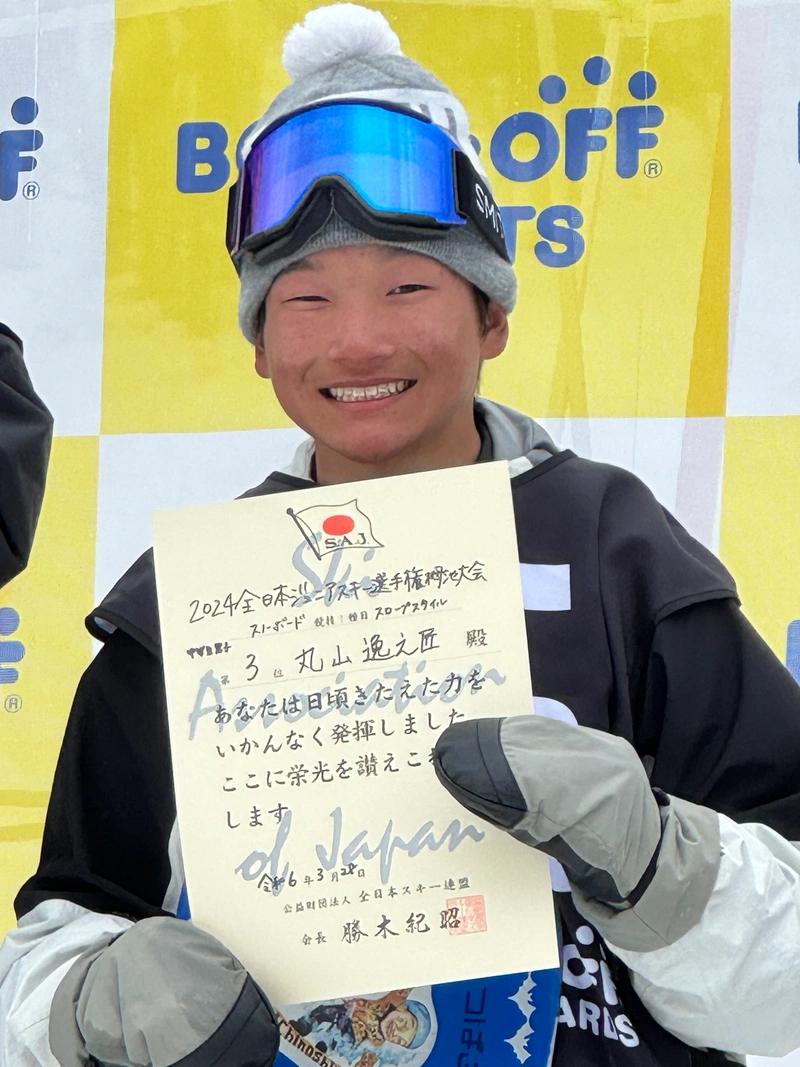 BOOKOFF®
SMITH
S.A.J.
Ski
Association
of Japan
2024全日本ジュニアスキー選手権栂池大会
スノーボード 競技:種目 スロープスタイル
第 3 位 丸山逸之匠 殿
あなたは日頃きたえた力を
いかんなく発揮しました
ここに栄光を讃えこ
します
令和6年3月28日
公益財団法人 全日本スキー連盟
会長 勝木紀昭